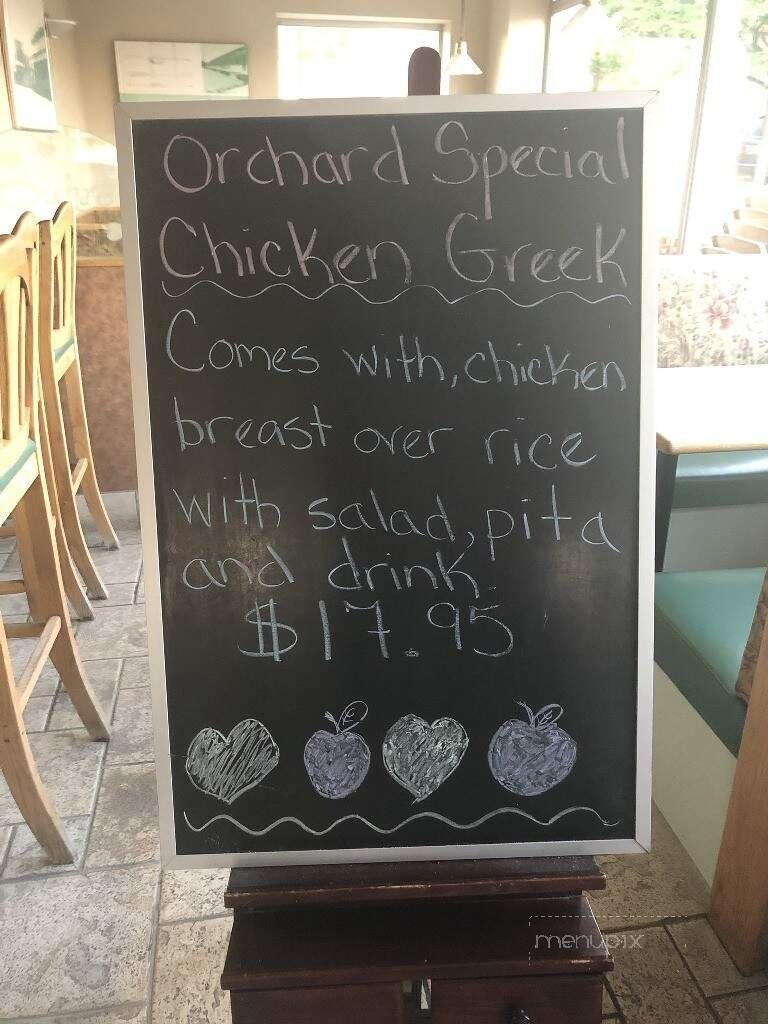 Orchard Special
Chicken Greek
Comes with, chicken
breast over rice
with salad, pita
and drink.
$17.95
menupix